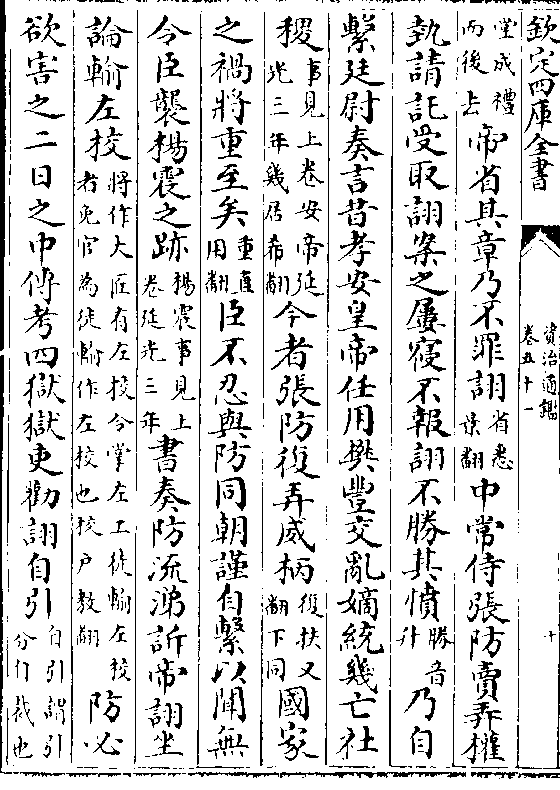 欽定四庫全書
資治通鑑
卷五十一
十
堂成禮而後去帝省其章乃不罪詡省悉景翻中常侍張防賣弄權
埶請託受取詡案之屢寢不報詡不勝其憤勝音升乃自
繫廷尉奏言昔孝安皇帝任用樊豐交亂嫡統幾亡社
稷事見上卷安帝延光三年幾居希翻今者張防復弄威柄復扶又翻下同國家
之禍將重至矣重直用翻臣不忍與防同朝謹自繫以聞無
令臣襲楊震之跡楊震事見上卷延光三年書奏防流涕訴帝詡坐
論輸左校將作大匠有左校令掌左工徒輸左校者免官為徒輸作左校也校户教翻防必
欲害之二日之中傳考四獄獄吏勸詡自引自引謂引分自裁也